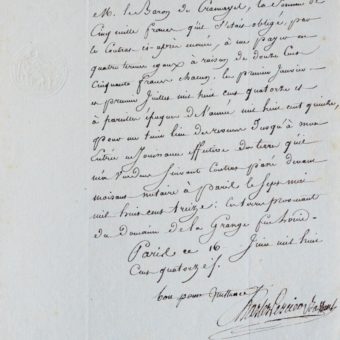 M. le Baron de Cramayel, la somme de
Cinq mille francs qu'il s'était obligé, par
le Contrat ci-après énoncé, à me payer en
quatre termes égaux à raison de douze cent
Cinquante francs chacun, les premier Janvier
et premier Juillet mil huit cent quatorze et
à pareilles époques de l'année mil huit cent quinze,
pour me tenir lieu de revenu jusqu'à mon
Entrée en Jouissance effective des biens qu'il
m'a vendus suivant Contrat passé devant
notaire à Paris le Sept mai
mil huit cent treize: les biens provenant
du Domaine de la Grange
Paris ce 16 Juin mil huit
Cent quatorze.
bon pour quittance